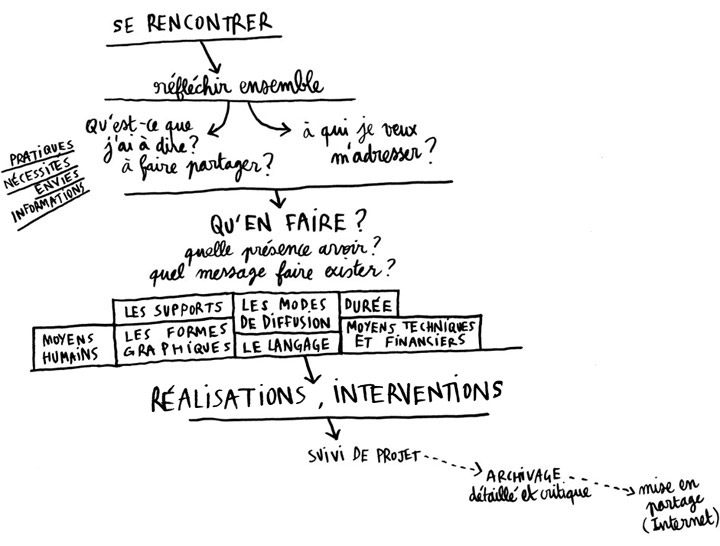 SE RENCONTRER
réfléchir ensemble
Qu'est-ce que
j'ai à dire?
à faire partager?
à qui je veux
m'adresser?
PRATIQUES
NÉCESSITÉS
ENVIES
INFORMATIONS
QU'EN FAIRE?
quelle présence avoir?
quel message faire exister?
MOYENS
HUMAINS
LES SUPPORTS
LES FORMES
GRAPHIQUES
LES MODES
DE DIFFUSION
LE LANGAGE
DURÉE
MOYENS TECHNIQUES
ET FINANCIERS
RÉALISATIONS, INTERVENTIONS
SUIVI DE PROJET
ARCHIVAGE
détaillé et critique
mise en
partage
(Internet)